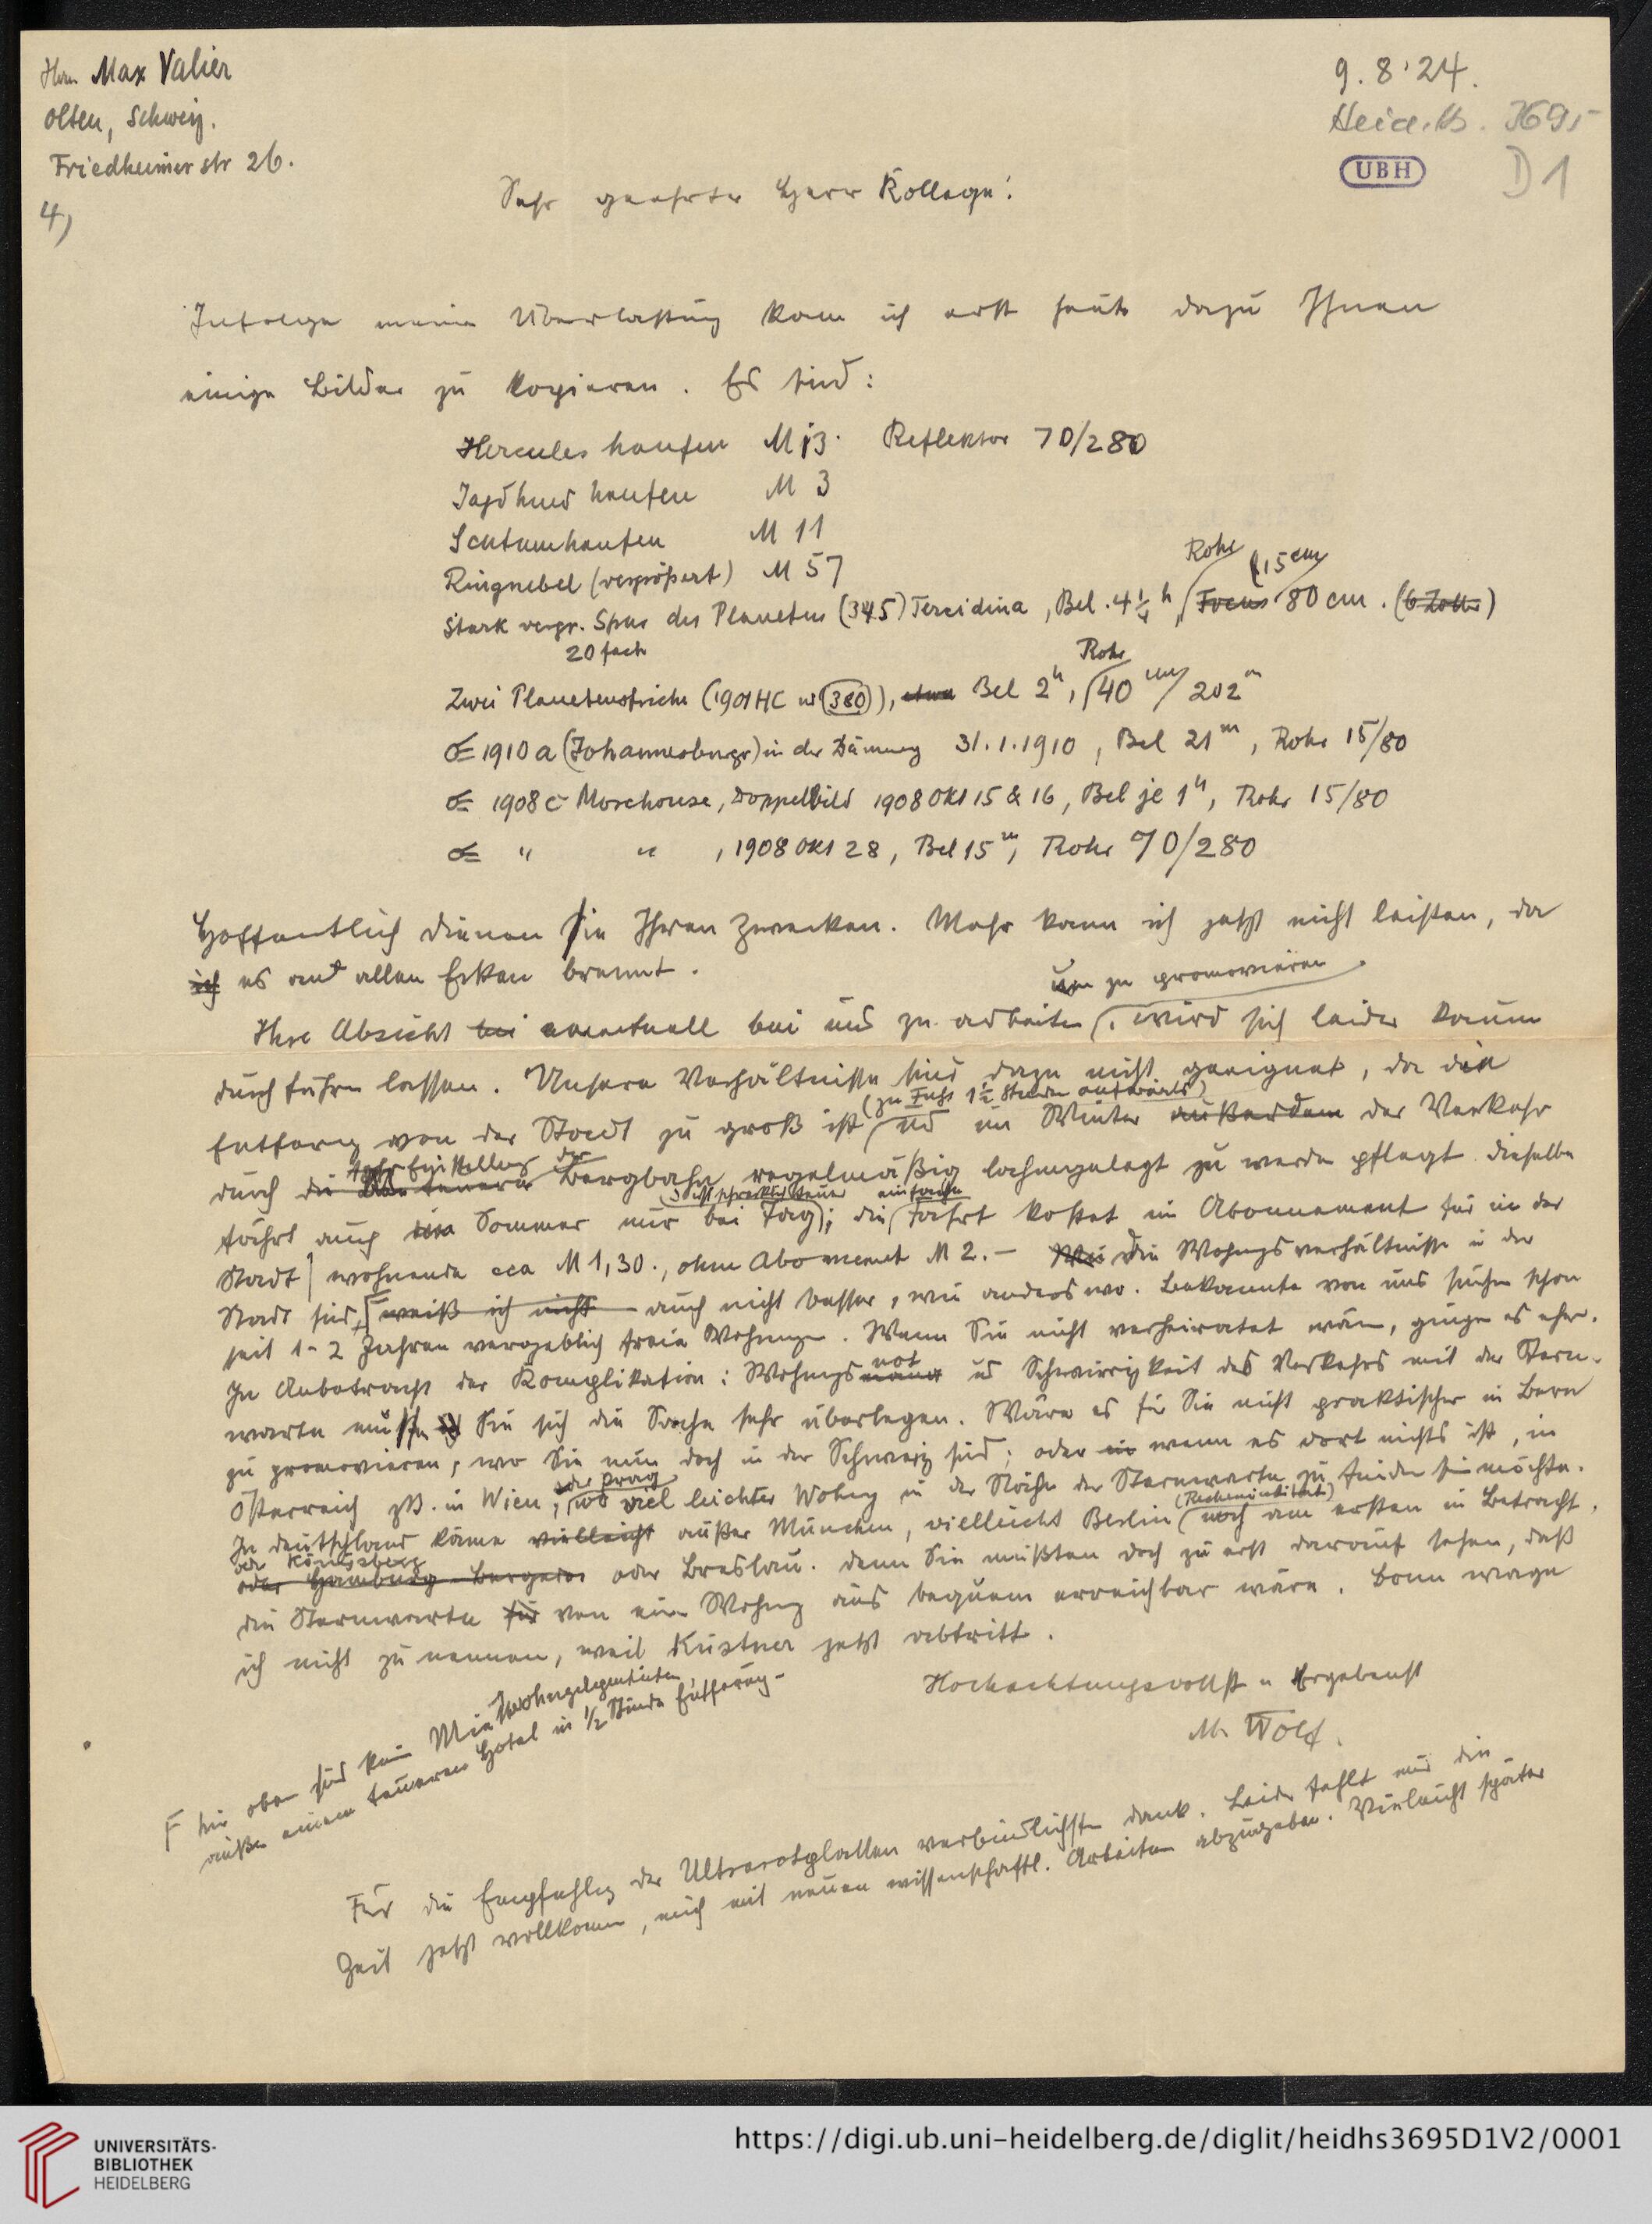 Hrn Max Valier
Olten, Schweiz.
Friedheimerstr 26.
4)
9. 8. '24.
Heid. Hs. 3695
D 1
UBH
Sehr geehrter Herr Kollege!
Infolge meiner Überlastung kam ich erst heute dazu Ihnen
einige Bilder zu kopieren. Es sind:
Herculeshaufen M 13. Reflektor 70/280
Jagdhundhaufen M 3
Scutumhaufen M 11
Ringnebel (vergrößert) M 57
Rohr (15 cm/
Stark vergr. Spur des Planeten (345) Tercidina, Bel. 4 1/4 h, Focus 80 cm. (6 Zoller)
20 fach
Rohr
Zwei Planetenstriche (1901 HC u (380)), etwa Bel 2h, 40 cm/202 m
☄ 1910 a (Johannesburg) in der Dämmerg 31.1.1910, Bel 21 m, Rohr 15/80
☄ 1908 c Morehouse, Doppelbild 1908 Okt 15 & 16, Bel je 1h, Rohr 15/80
☄ " " , 1908 Okt 28, Bel 15 m, Rohr 70/280
Hoffentlich dienen sie Ihren Zwecken. Mehr kann ich jetzt nicht leisten, da
ich es an allen Ecken brennt.
um zu promovieren
Ihre Absicht bei eventuell bei uns zu arbeiten, wird sich leider kaum
durchführen lassen. Unsere Verhältnisse sind dazu nicht geeignet, da die
(zu Fuß 1 1/2 Stunden aufwärts)
Entferng von der Stadt zu groß ist und im Winter außerdem der Verkehr
durch die teuere Bergbahn regelmäßig lahmgelegt zu werden pflegt. Dieselbe
(ist schrecklich teuer einfache
fährt auch im Sommer nur bei Tag); die Fahrt kostet im Abonnement für in der
Stadt wohnende cca M 1,30., ohne Abonnement M 2.– Die Wohngsverhältnisse in der
Stadt sind, weiß ich nicht auch nicht besser, wie anderswo. Bekannte von uns suchen schon
seit 1-2 Jahren vergeblich freie Wohnungen. Wenn Sie nicht verheiratet wären, ginge es eher.
not
In Anbetracht der Komplikation: Wohngs und Schwierigkeit des Verkehrs mit der Stern-
warte müssen Sie sich die Sache sehr überlegen. Wäre es für Sie nicht praktischer in Bern
zu promovieren, wo Sie nun doch in der Schweiz sind; oder wenn es dort nichts ist, in
oder Prag
Österreich zB. in Wien, wo viel leichter Wohng in der Nähe der Sternwarte zu finden sein möchte.
(Recheninstitut)
In Deutschland käme vielleicht außer München, vielleicht Berlin noch am ersten in Betracht,
oder Königsberg
oder Hamburg-Bergedorf oder Breslau. Denn Sie müßten doch zu erst darauf sehen, daß
die Sternwarte für von einer Wohng aus bequem erreichbar wäre. Bonn wage
ich nicht zu nennen, weil Küstner jetzt abtritt.
Hochachtungsvollst u Ergebenst
M. Wolf.
F hier oben sind keine Mietwohngelegenheiten,
außer einem teueren Hotel in 1/2 Stunde Entferung-
Für die Empfehlg der Ultrarotplatten verbindlichsten Dank. Leider fehlt mir die
Zeit jetzt vollkommen, mich mit neuen wissenschaftl. Arbeiten abzugeben. Vielleicht später
UNIVERSITÄTS-
BIBLIOTHEK
HEIDELBERG
https://digi.ub.uni-heidelberg.de/diglit/heidhs3695D1V2/0001